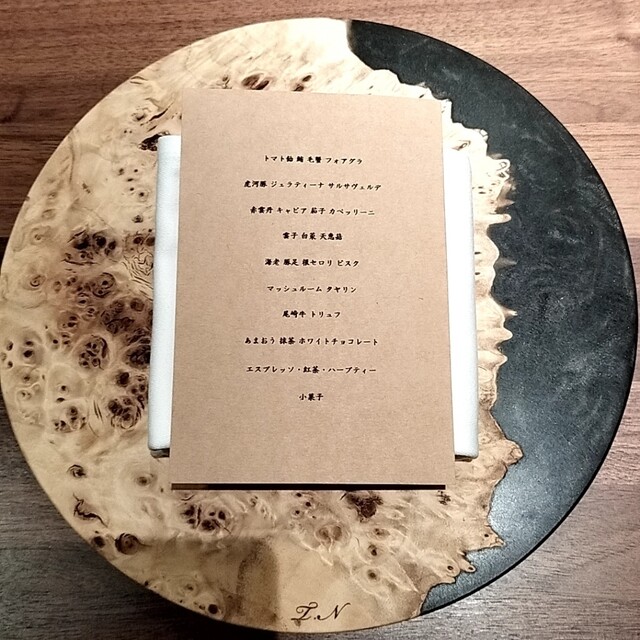 トマト飴 鮪 毛蟹 フォアグラ
虎河豚 ジェラティーナ サルサヴェルデ
赤雲丹 キャビア 茄子 カペッリーニ
雲子 白菜 天恵菇
海老 豚足 根セロリ ビスク
マッシュルーム タヤリン
尾崎牛 トリュフ
あまおう 抹茶 ホワイトチョコレート
エスプレッソ・紅茶・ハーブティー
小菓子
T.N